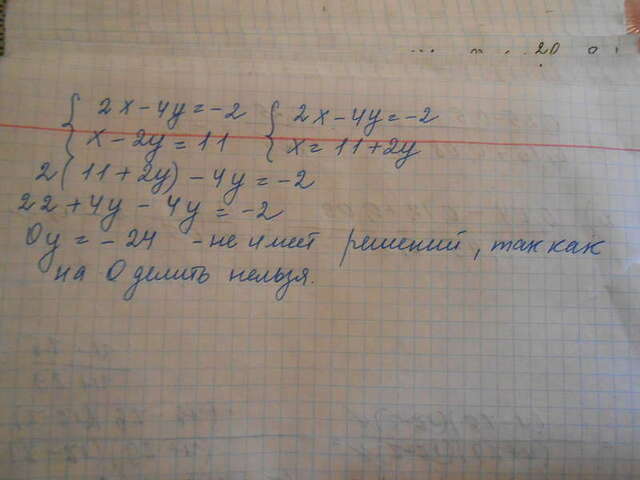 2x-4y=-2 2x-4y=-2
x-2y=11 x=11+2y
2(11+2y)-4y=-2
22+4y-4y=-2
0y=-24 -не имет решений, так как
на 0 делить нельзя.
20